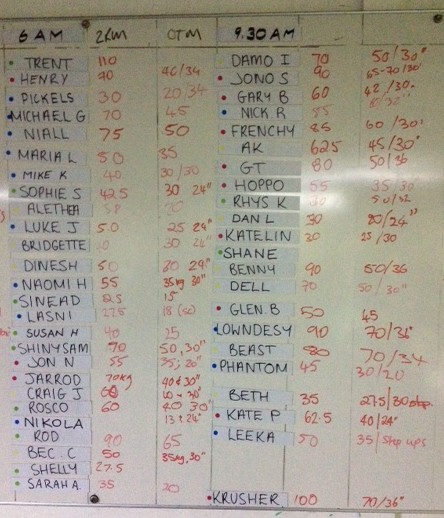 6 AM 2RM OTM
TRENT 110
HENRY 90 40/34
PICKELS 30 20/34
MICHAEL G 70 45
NIALL 75 50
MARIA L 50 35
MIKE K 40 30/30
SOPHIE S 42.5 30 24"
ALETHEA
LUKE J 50 25 24"
BRIDGETTE 30 24"
DINESH 50 20 24"
NAOMI H 55 35kg 30"
SINEAD 25 15
LASNI 27.5 18 (sc)
SUSAN H 40 25
SHINYSAM 70 50,30"
JON N 55 35, 20"
JARROD 70kg 40 & 30"
CRAIG J 60 40 & 30"
ROSCO 60 40 30"
NIKOLA
ROD 90 65
BEC. C 50 35kg, 30"
SHELLY 27.5
SARAH A. 35 20
9.30 AM
DAMO I 70 50/30"
JONO S 90 65-70/30'
GARY B 60 42/30.
NICK R
FRENCHY 85 60/30'
AK 62.5 45/30'
GT 80 50/36
HOPPO 55 35/30
RHYS K
DAN L 30 20/24"
KATELIN 30 25/30
SHANE
BENNY 90 50/36
DELL 70 50/30"
GLEN.B 50 45
LOWNDESY 90 70/36"
BEAST 80 70/34
PHANTOM 45 30/20
BETH 35 27.5/30 step
KATE P 62.5 40/24"
LEEKA 50 35/step ups
KRUSHER 100 70/36"